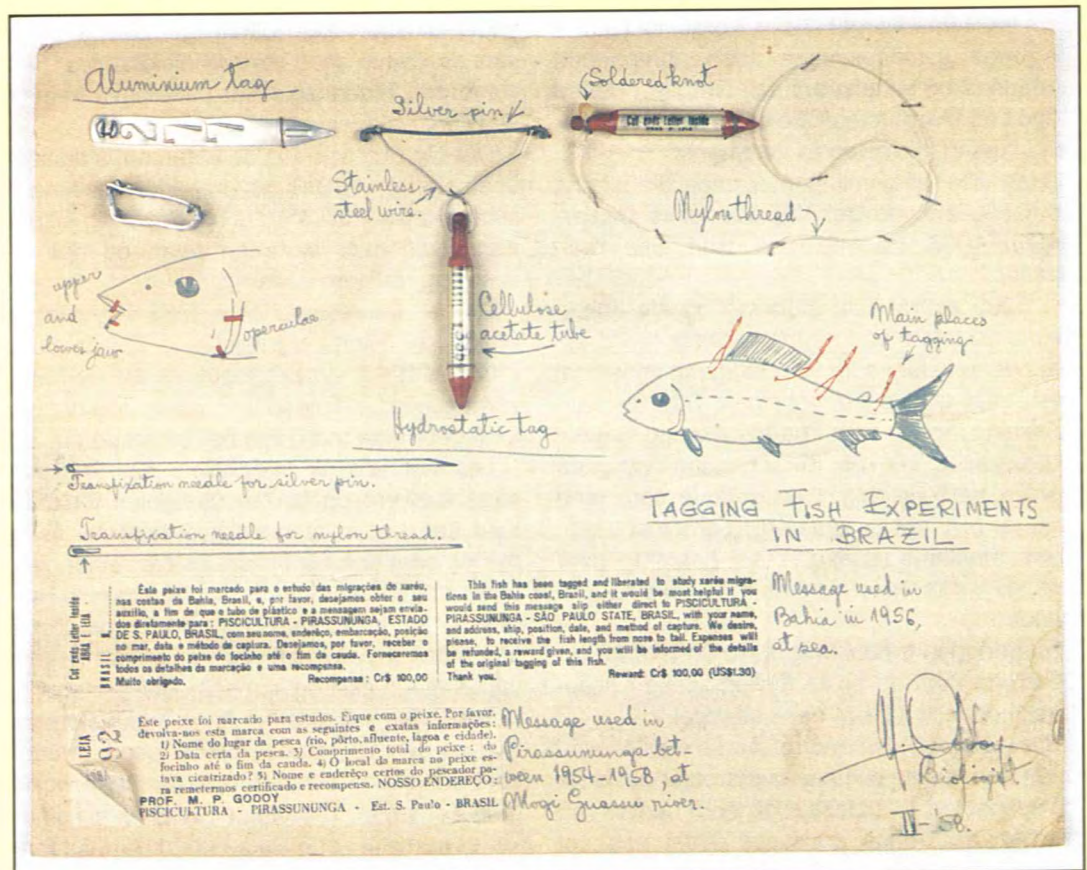 Aluminium tag
Silver pin
Soldered knot
Cut ends Letter Inside
Stainless
steel wire.
Nylon thread
upper
and
lower jaw
operculae
Cellulose
acetate tube
Main places
of tagging
Hydrostatic tag
Transfixation needle for silver pin.
Transfixation needle for nylon thread.
TAGGING FISH EXPERIMENTS
IN BRAZIL
Cut ends Letter Inside
ABRA E LEIA
BRASIL N.
Este peixe foi marcado para o estudo das migrações do xaréu,
nas costas da Bahia, Brasil, e, por favor, desejamos obter o seu
auxílio, a fim de que o tubo de plástico e a mensagem sejam envia-
dos diretamente para: PISCICULTURA - PIRASSUNUNGA, ESTADO
DE S. PAULO, BRASIL, com seu nome, endereço, embarcação, posição
no mar, data e método de captura. Desejamos, por favor, receber o
comprimento do peixe do focinho até o fim da cauda. Forneceremos
todos os detalhes da marcação e uma recompensa.
Muito obrigado. Recompensa: Cr$ 100,00
This fish has been tagged and liberated to study xaréu migra-
tions in the Bahia coast, Brazil, and it would be most helpful if you
would send this message slip either direct to PISCICULTURA -
PIRASSUNUNGA - SÃO PAULO STATE, BRASIL, with your name,
and address, ship, position, date, and method of capture. We desire,
please, to receive the fish length from nose to tail. Expenses will
be refunded, a reward given, and you will be informed of the details
of the original tagging of this fish.
Thank you. Reward: Cr$ 100,00 (US$1.30)
Message used in
Bahia in 1956,
at sea.
LEIA
92
Este peixe foi marcado para estudos. Fique com o peixe. Por favor,
devolva-nos esta marca com as seguintes e exatas informações:
1) Nome do lugar da pesca (rio, pôrto, afluente, lagoa e cidade).
2) Data certa da pesca. 3) Comprimento total do peixe: do
focinho até o fim da cauda. 4) O local da marca no peixe es-
tava cicatrizado? 5) Nome e enderêço certos do pescador pa-
ra remetermos certificado e recompensa. NOSSO ENDEREÇO:
PROF. M. P. GODOY
PISCICULTURA - PIRASSUNUNGA - Est. S. Paulo - BRASIL
Message used in
Pirassununga bet-
ween 1954-1958, at
Mogi Guassu river.
Godoy
Biologist
II-58.